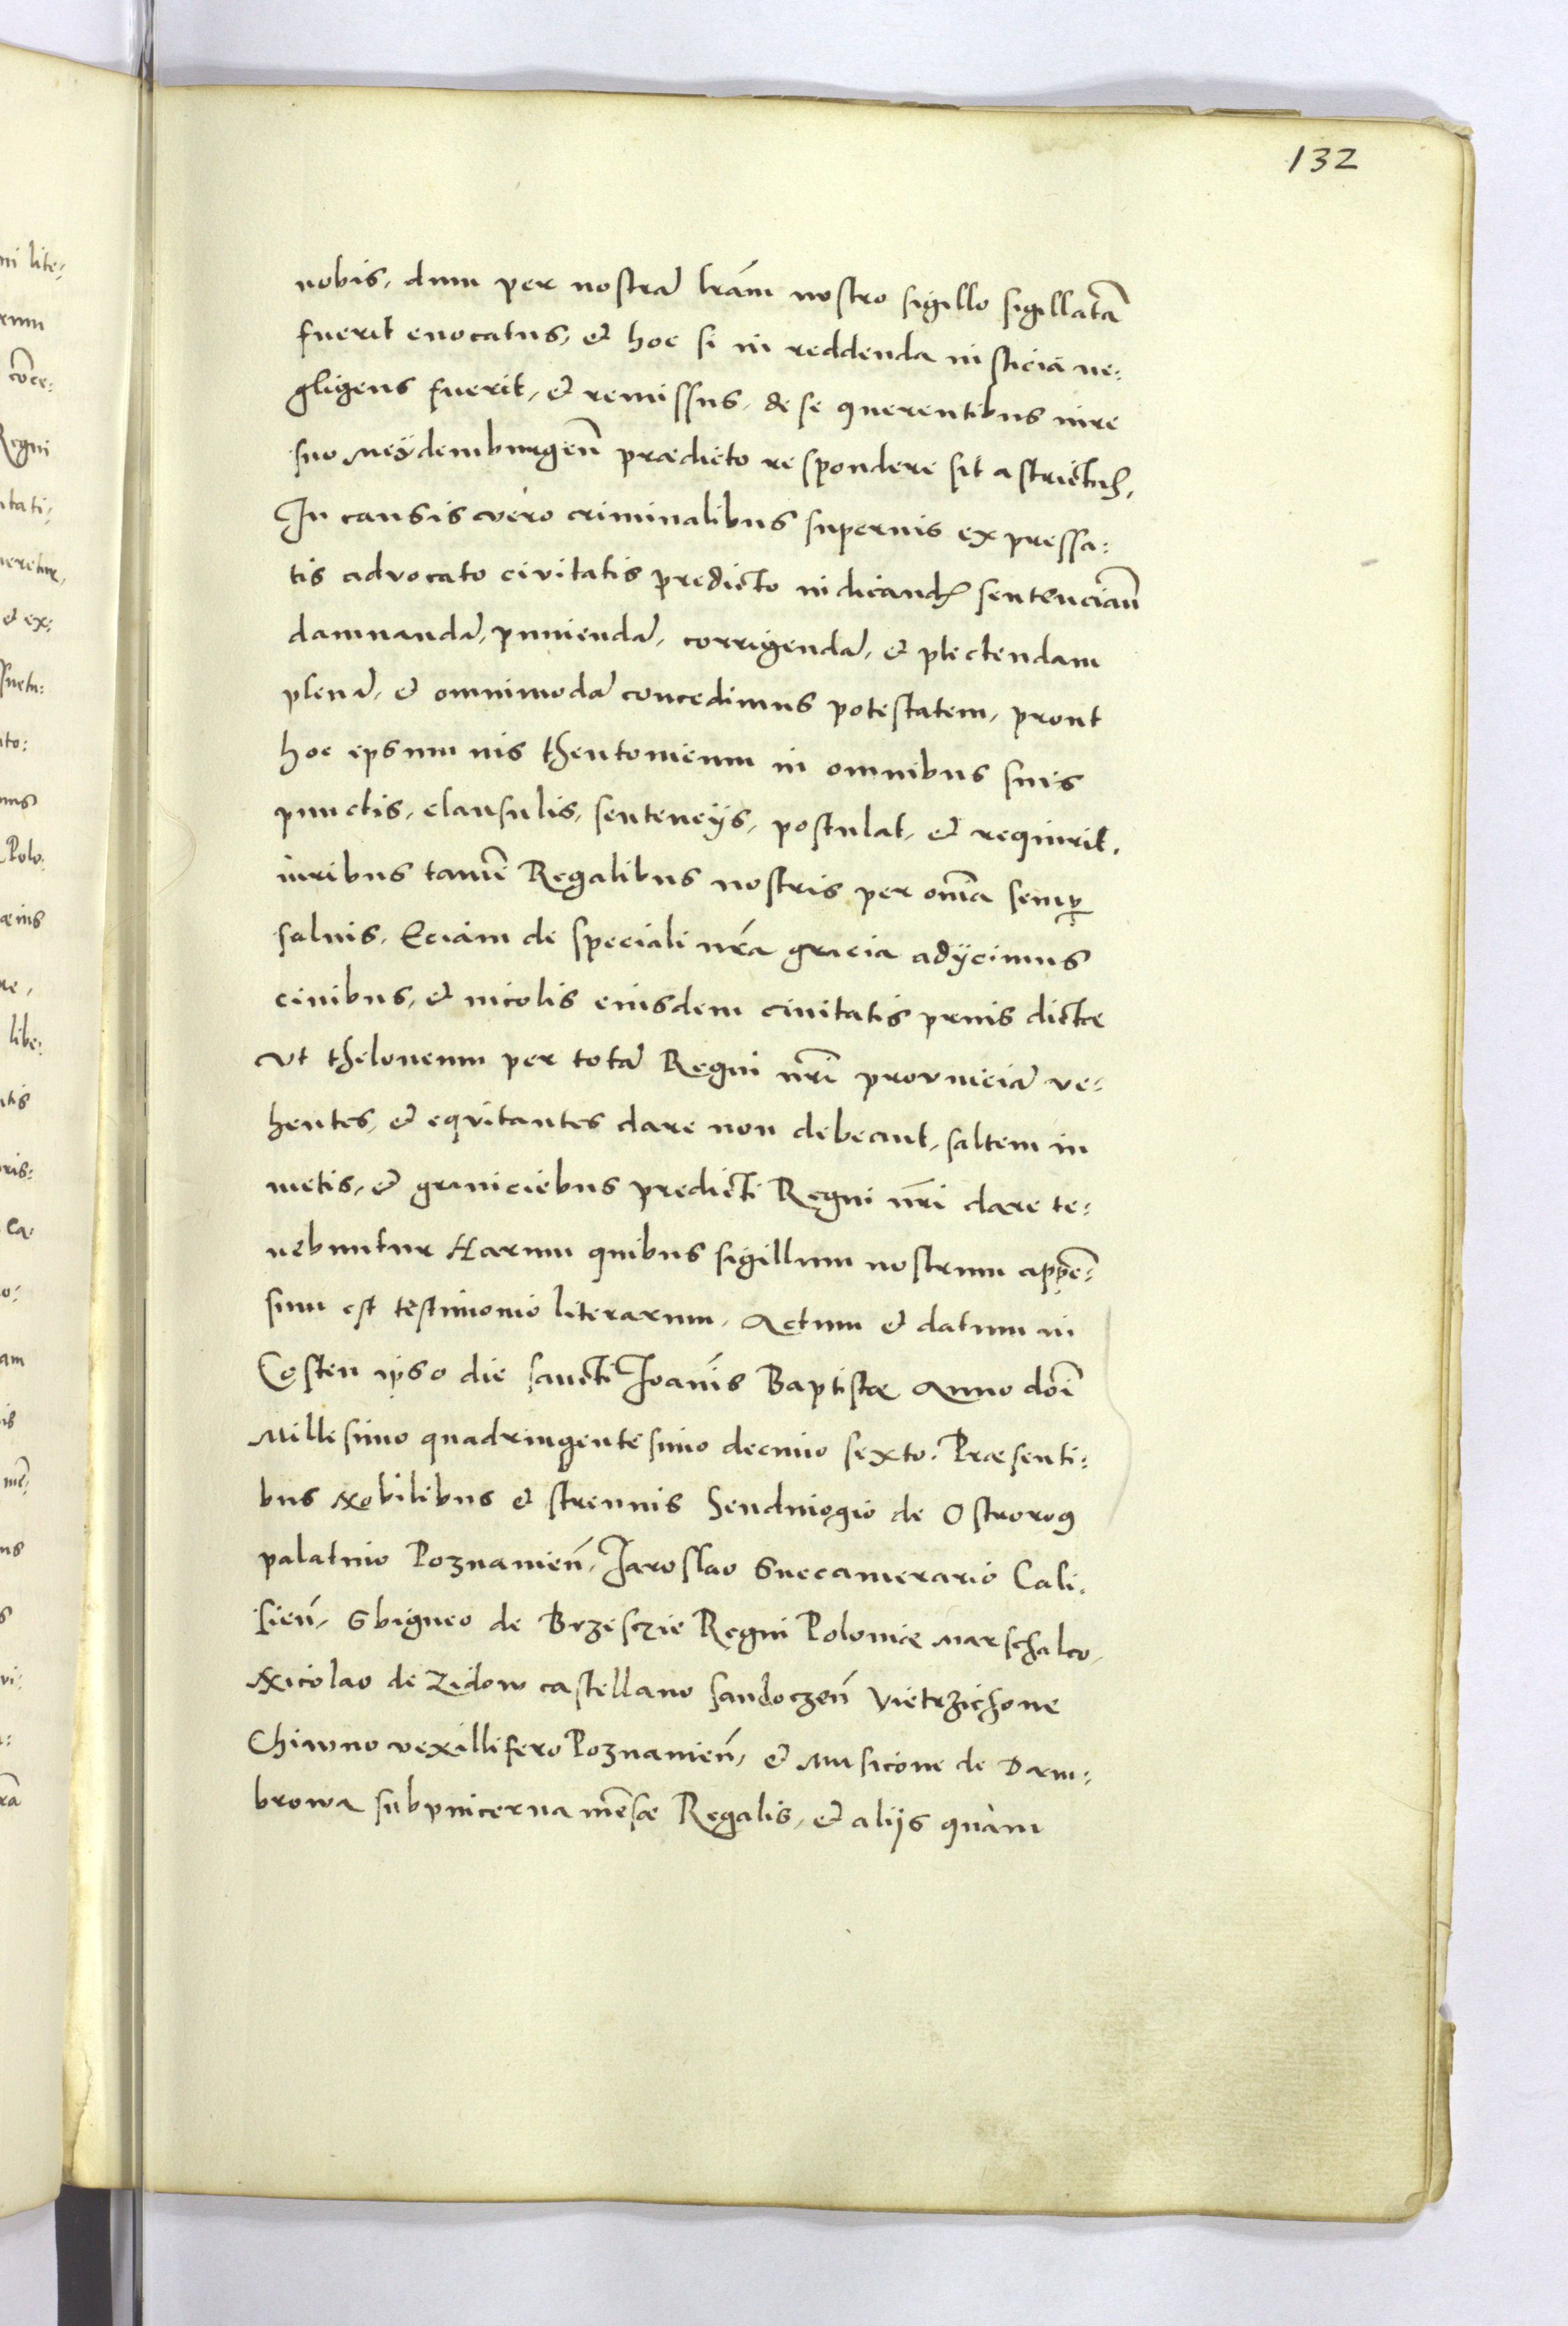 132
nobis, dum per nostrã lrãm nostro sigillo sigillatã
fuerit euocatus, et hoc si in reddenda iusticia ne:
gligens fuerit, et remissus, de se querentibus iure
suo Meydemburgeñ prædicto respondere sit astrictus,
In causis vero criminalibus superius expressa:
tis advocato civitatis predicto iudicandi sentenciam
damnandã, puniendã, corrigendã, et plectendam
plenã, et omnimodã concedimus potestatem, prout
hoc ipsum ius theutonicum in omnibus suis
punctis, clausulis, sentencijs, postulat, et requirit,
iuribus tamẽ Regalibus nostris per oĩa semp
saluis, Eciam de speciali nr̃a gracia adijcimus
ciuibus, et incolis eiusdem ciuitatis prius dictæ
Vt theloneum per totã Regni nr̃i prouinciã ve:
hentes, et equitantes dare non debeant, saltem in
metis, et graniciebus predicti Regni nr̃i dare te:
nebuntur Harum quibus sigillum nostrum appẽ:
sum est testimonio literarum. Actum et datum in
Costen ipso die sancti Joanis Baptistæ Anno doĩ
Millesimo quadringentesimo decimo sexto. Præsenti:
bus Nobilibus et strenuis Sendiuogio de Ostrorog
palatino Poznanieñ, Jaroslao Succamerario Cali:
sieñ, Sbigneo de Brzesczie Regni Poloniæ Marschalco,
Nicolao de Zidow castellano Sandoczeñ Vietrzichone
Chiwno vexillifero Poznanieñ, et Musicone de Dam:
browa subpincerna mẽsæ Regalis, et alijs quàm
ni lite:
rum
cõce:
Regni
tati:
ueretur,
et ex:
to:
Polo:
libe:
tis
ris:
am
mẽ: